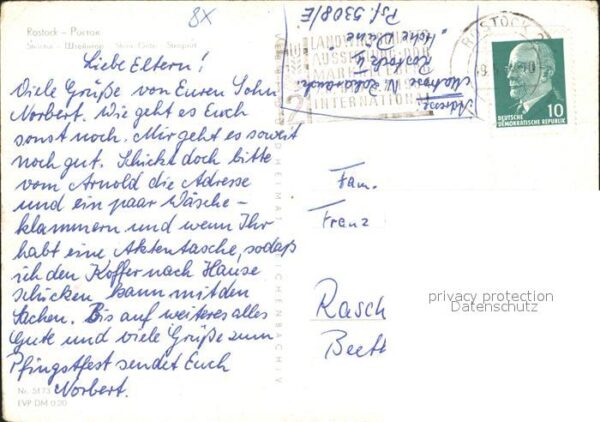 8X
Rostock – Росток
Liebe Eltern!
Viele Grüße von Euren Sohn
Norbert. Wie geht es Euch
sonst noch. Mir geht es soweit
noch gut. Schickt doch bitte
vom Arnold die Adresse
und ein paar Wäsche-
klammern und wenn Ihr
habt eine Aktentasche, sodaß
ich den Koffer nach Hause
schicken kann mit den
Sachen. Bis auf weiteres alles
Gute und viele Grüße zum
Pfingstfest sendet Euch
Norbert.
Nr. 5173
EVP DM 0,20
Adresse
Matrose N.
Rostock
Psf. 5308/E
LANDWIRTSCHAFTS
AUSSTELLUNG DDR
MARKKLEEBERG
INTERNATIONAL
ROSTOCK 2
10
DEUTSCHE
DEMOKRATISCHE REPUBLIK
Fam.
Franz
Rasch
privacy protection
Datenschutz